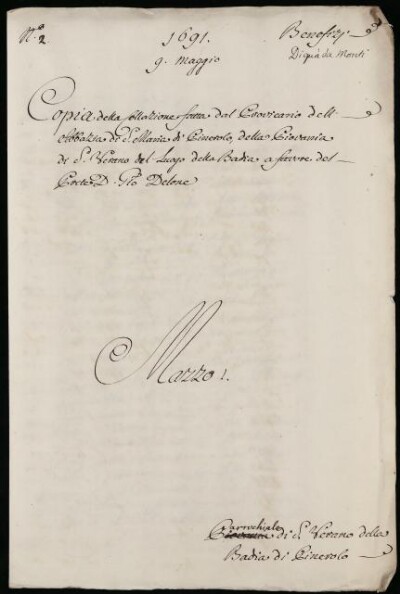 N.° 2.
1691.
9. Maggio
Benefizj
Di quà da Monti
Copia della Collazione fatta dal Provicario dell'
Abbazia di S. Maria di Pinerolo, della Piovania
di S. Verano del Luogo della Badia a favore del
Prete D. Gio Delone
Mazzo 1.
Parrochiale
Piovania di S. Verano della
Badia di Pinerolo